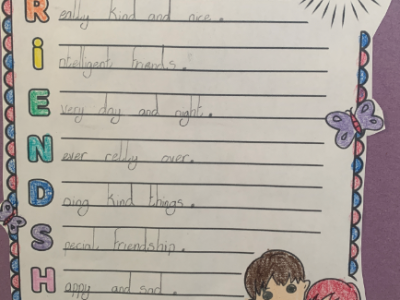 Really kind and nice.
intelligent friends.
Every day and night.
Never relly over.
Doing kind things.
Special friendship.
Happy and sad.